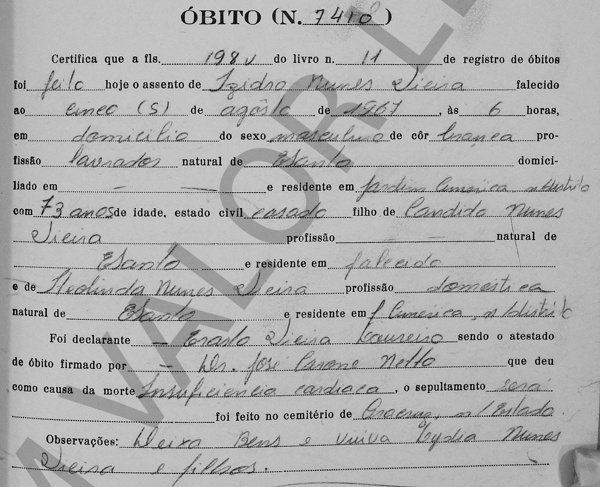 ÓBITO (N. 7410)
Certifica que a fls. 198 v do livro n. 11 de registro de óbitos
foi feito hoje o assento de Izidro Nunes Vieira falecido
ao cinco (5) de agôsto de 1967, às 6 horas,
em domicilio do sexo masculino de côr branca pro-
fissão lavrador natural de EŜanto domici-
liado em — — e residente em Jardim America n/distrito
com 73 anos de idade, estado civil casado filho de Candido Nunes
Vieira profissão — natural de
EŜanto e residente em falecido
e de Nunes Vieira profissão domestica
natural de EŜanto e residente em J America, n/distrito
Foi declarante — Erasto Vieira Loureiro sendo o atestado
de óbito firmado por — Dr. José Carone Netto que deu
como causa da morte Insuficiencia cardiaca, o sepultamento será
foi feito no cemitério de n/Estado.
Observações: Deixa Bens e viuva Lydia Nunes
Vieira e filhos.
VALOR